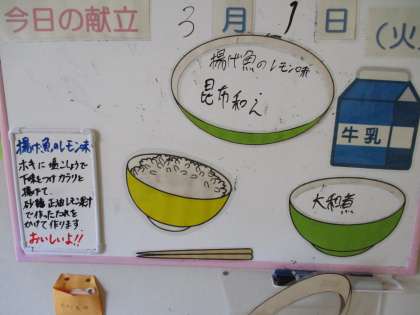 今日の献立 3月1日(火
揚げ魚のレモン味
昆布和え
牛乳
大和煮
揚げ魚のレモン味
ホキに塩こしょうで
下味をつけカラリと
揚げて、
砂糖 正油 レモン果汁
で作ったたれを
かけて作ります
おいしいよ!!